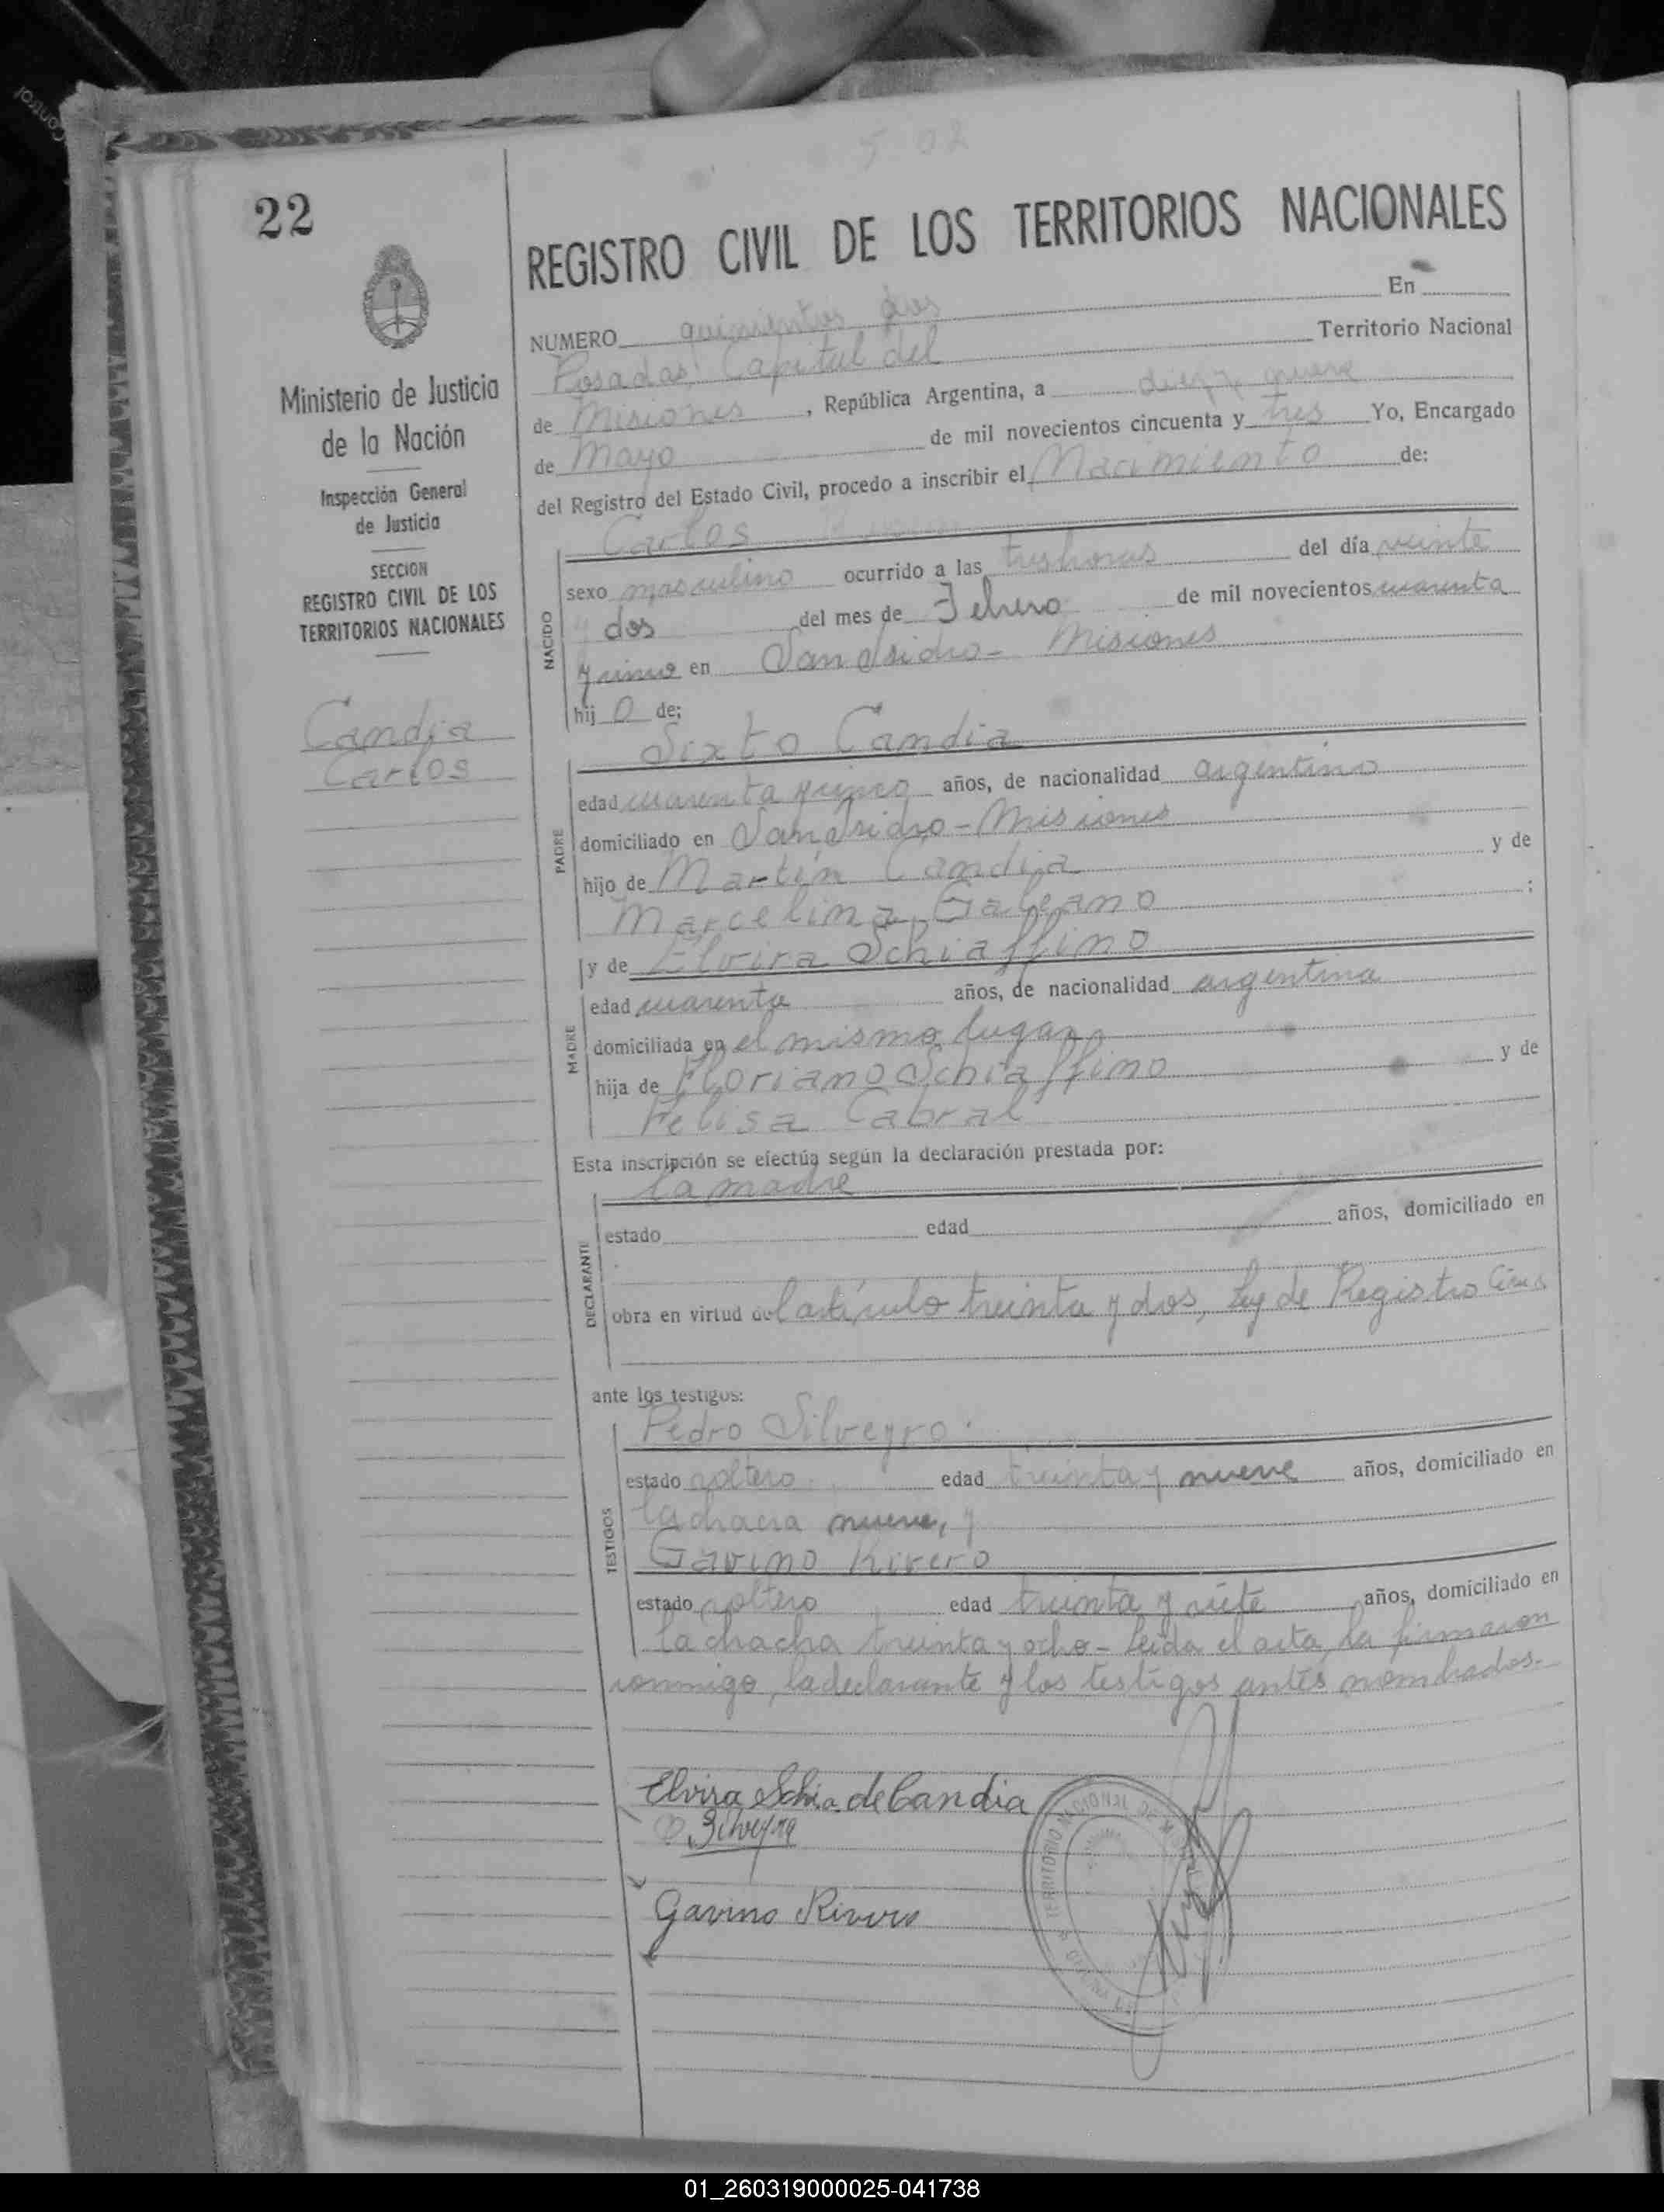 Control
502
22
REGISTRO CIVIL DE LOS TERRITORIOS NACIONALES
Ministerio de Justicia
de la Nación
Inspección General
de Justicia
SECCION
REGISTRO CIVIL DE LOS
TERRITORIOS NACIONALES
Candia
Carlos
NUMERO quinientos dos En
Posadas, Capital del Territorio Nacional
de Misiones, República Argentina, a diez y nueve
de Mayo de mil novecientos cincuenta y tres Yo, Encargado
del Registro del Estado Civil, procedo a inscribir el Nacimiento de:
Carlos
NACIDO
sexo masculino ocurrido a las tres horas del día veinte
y dos del mes de Febrero de mil novecientos cuarenta
y cinco en San Isidro - Misiones
hij o de;
Sixto Candia
PADRE
edad cuarenta y cinco años, de nacionalidad argentino
domiciliado en San Isidro - Misiones
hijo de Martín Candia y de
Marcelina Galeano ;
y de Elvira Schiaffino
MADRE
edad cuarenta años, de nacionalidad argentina
domiciliada en el mismo lugar
hija de Floriano Schiaffino y de
Felisa Cabral
Esta inscripción se efectúa según la declaración prestada por:
la madre
DECLARANTE
estado edad años, domiciliado en
obra en virtud del artículo treinta y dos, Ley de Registro Civil
ante los testigos:
TESTIGOS
Pedro Silveyro.
estado soltero edad treinta y nueve años, domiciliado en
la chacra nueve, y
Gavino Rivero
estado soltero edad treinta y siete años, domiciliado en
la chacha treinta y ocho - Leída el acta, la firmaron
conmigo, la declarante y los testigos antes nombrados.-
Elvira Schia. de Candia
Silveyra
Gavino Rivero
TERRITORIO NACIONAL DE
01_260319000025-041738